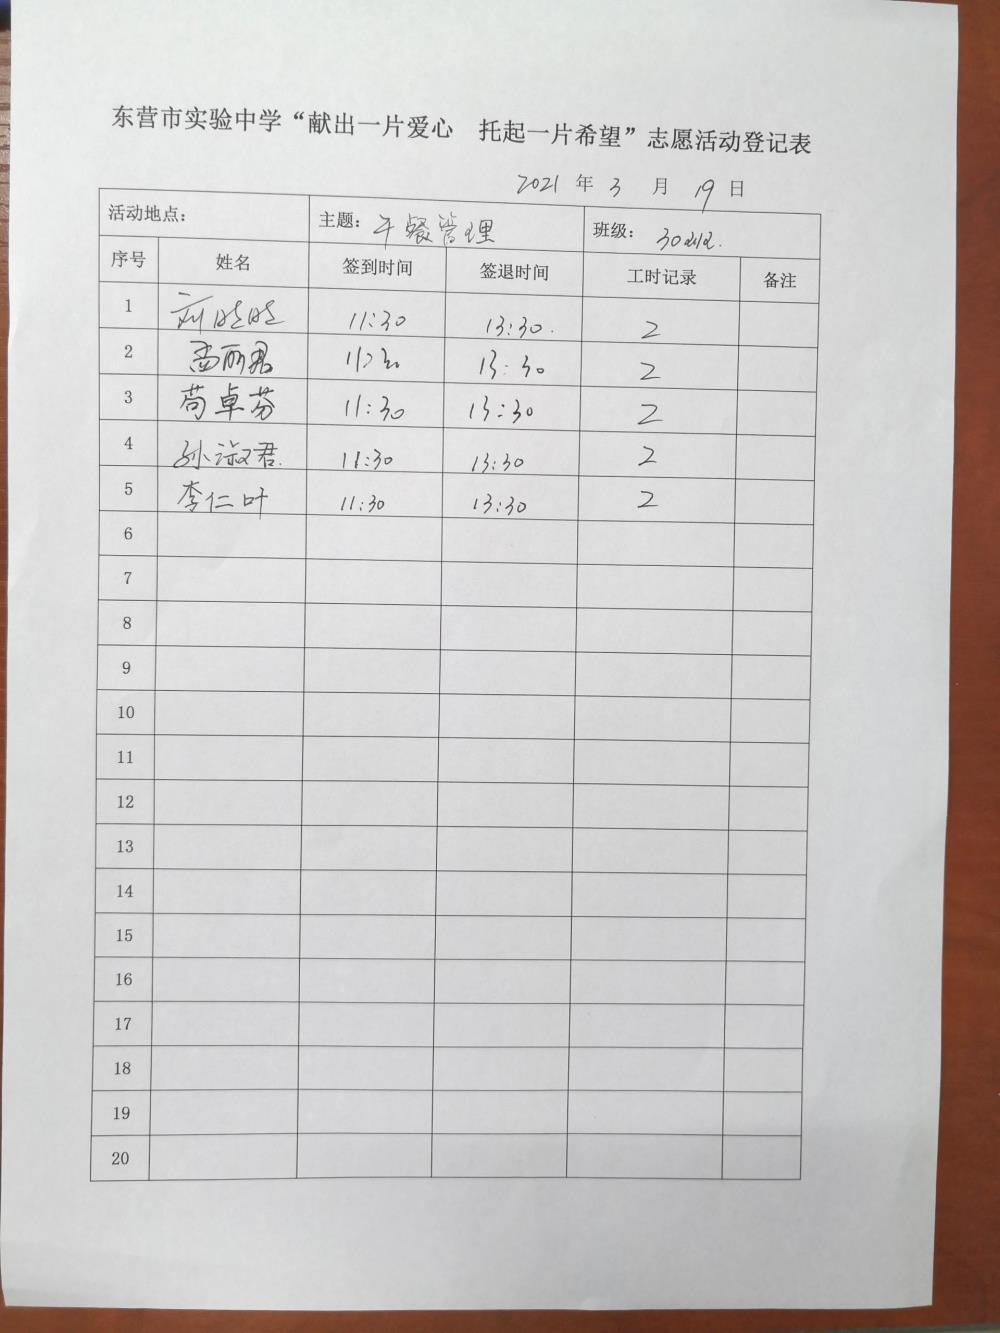 东营市实验中学“献出一片爱心 托起一片希望”志愿活动登记表
2021 年 3 月 19 日
活动地点: 主题: 午餐管理 班级: 30
序号 姓名 签到时间 签退时间 工时记录 备注
1 刘 11:30 13:30. 2
2 孟丽君 11:30 13:30 2
3 苟卓芬 11:30 13:30 2
4 孙淑君. 11:30 13:30 2
5 李仁叶 11:30 13:30 2
6
7
8
9
10
11
12
13
14
15
16
17
18
19
20